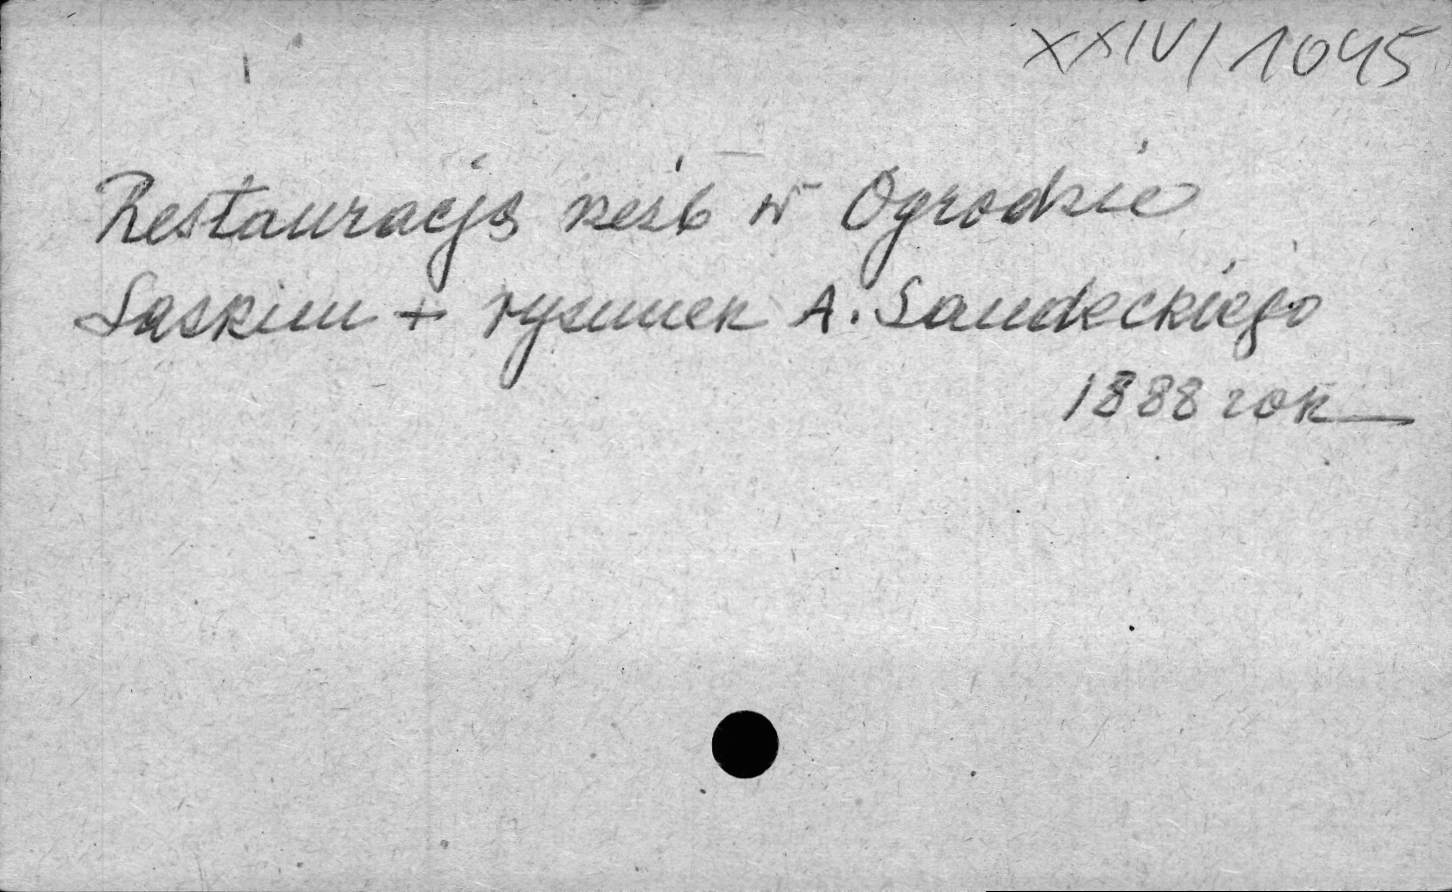 XXIV/1045
Restauracja rzeźb w Ogrodzie
Saskim + rysunek A. Sandeckiego
1888 rok